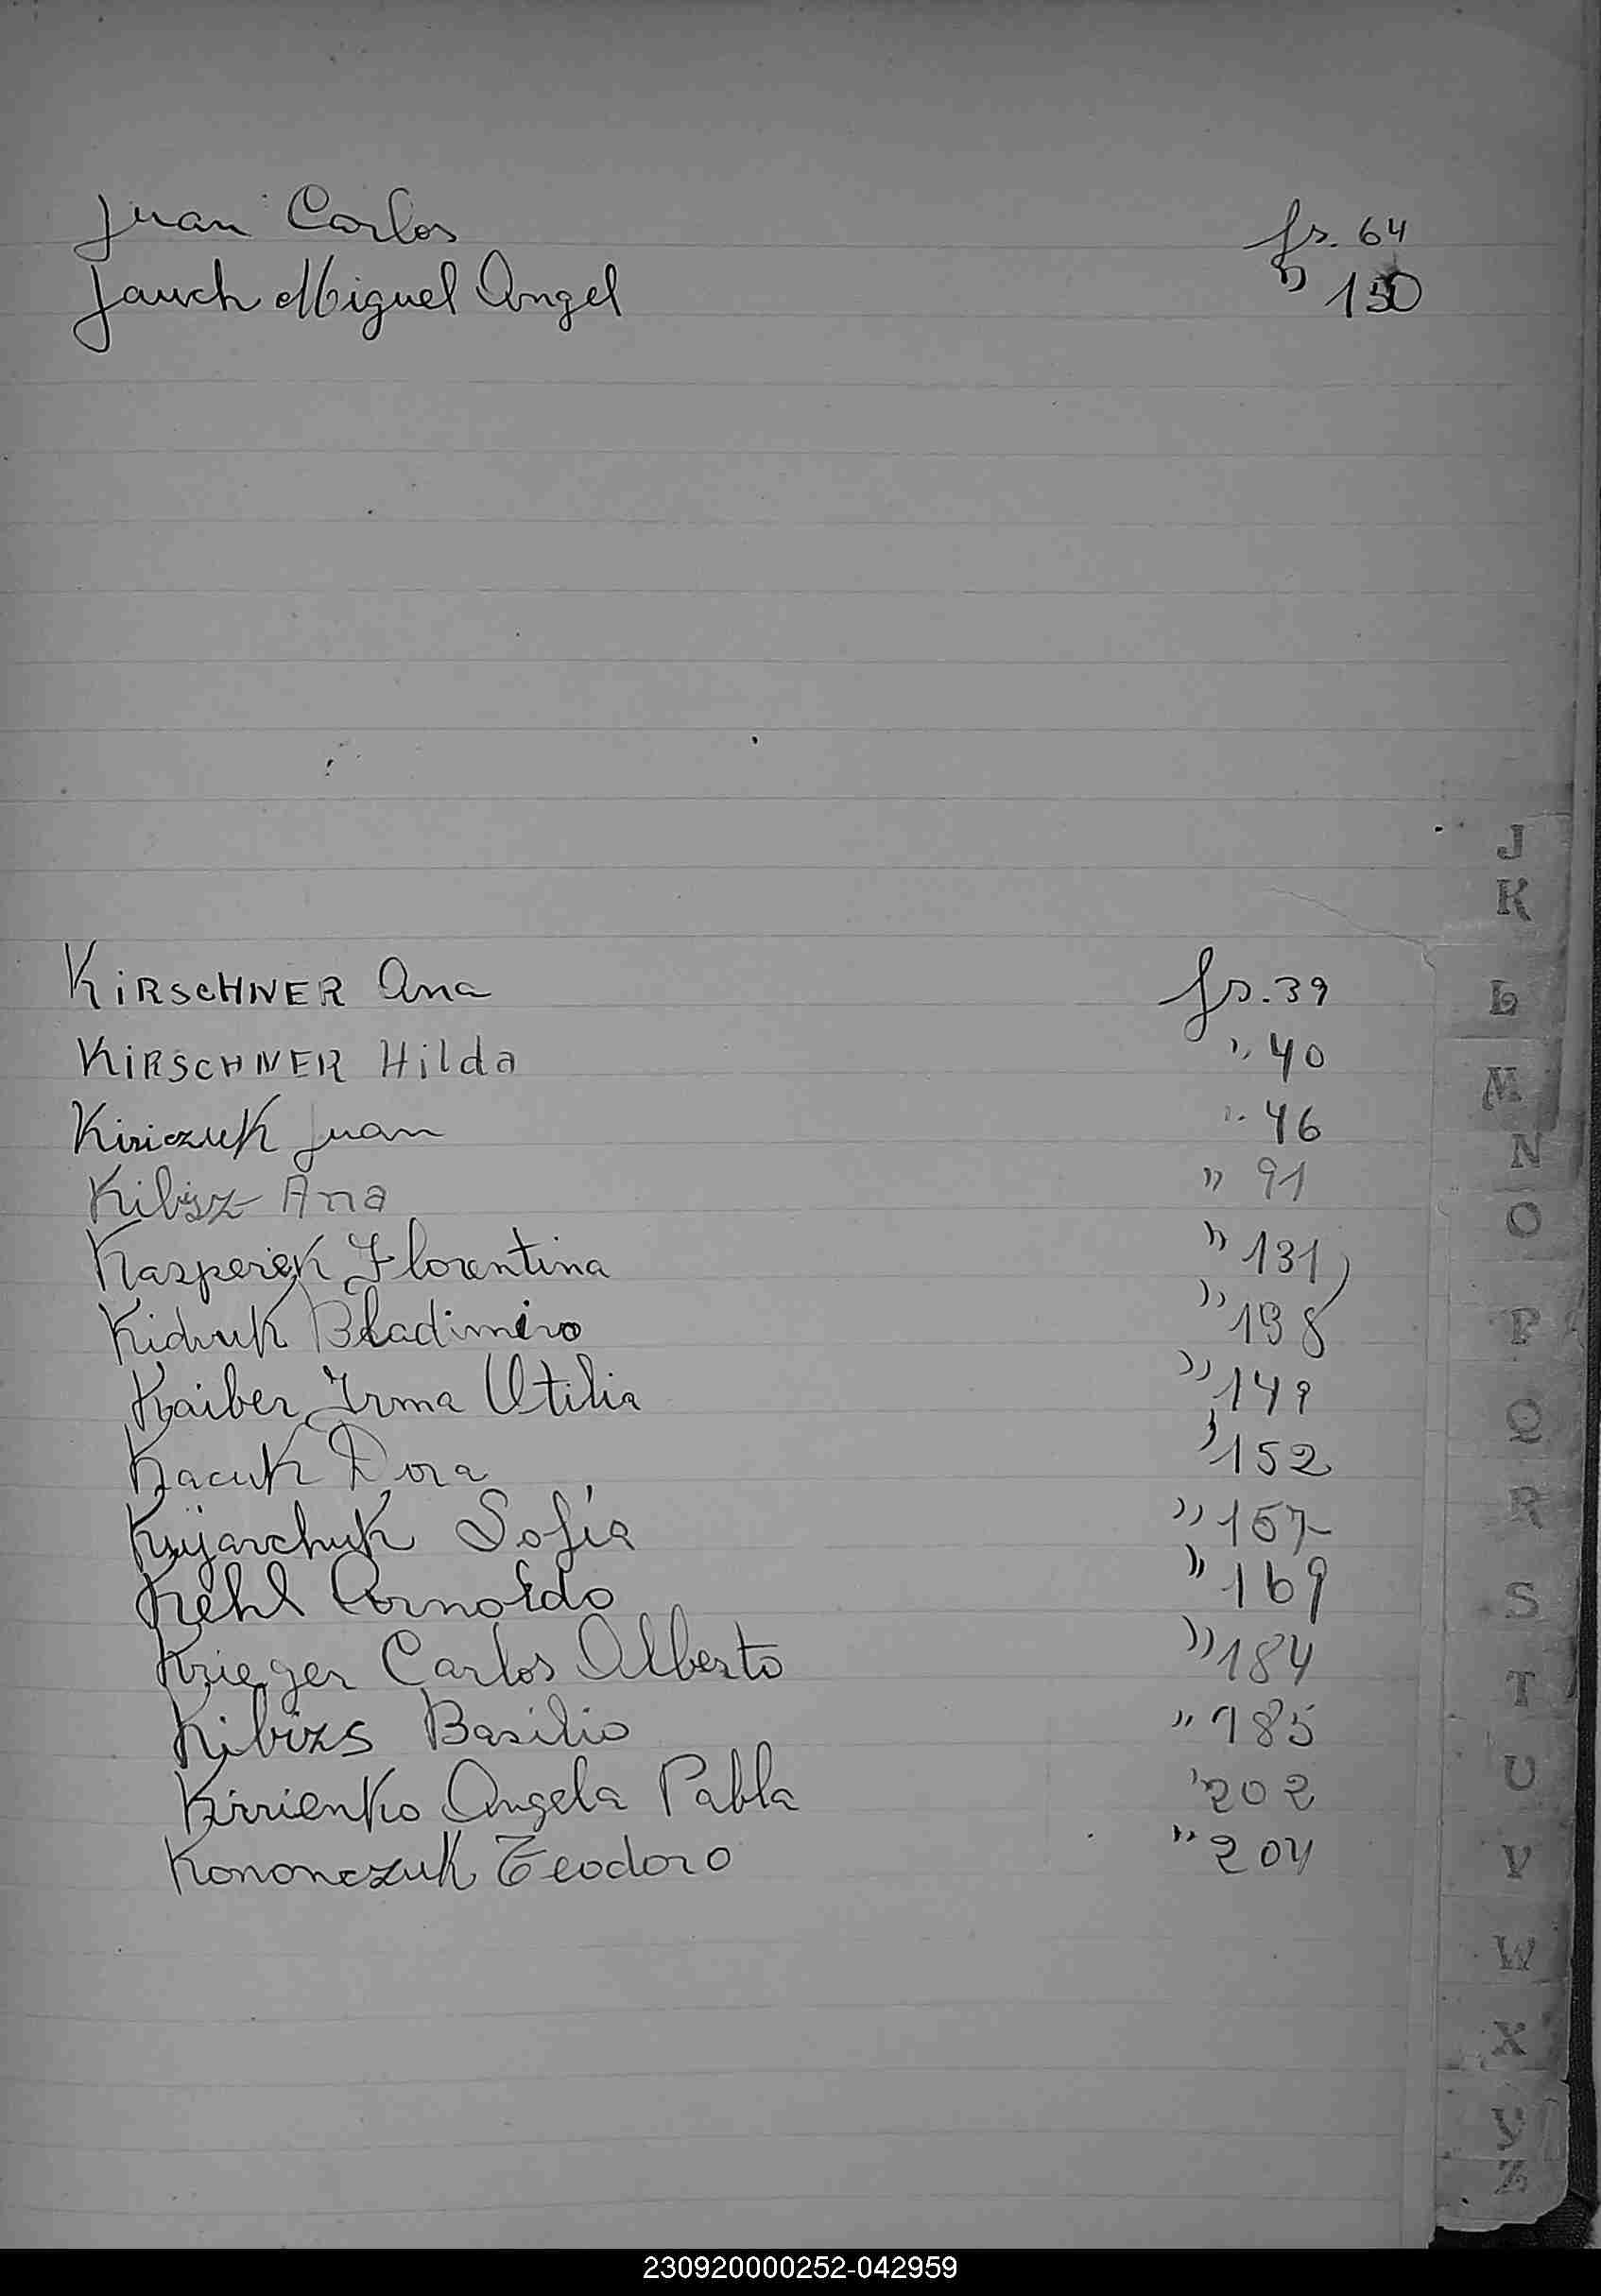 Juan Carlos fs. 64
Jauch Miguel Angel " 150
J
K
KIRSCHNER Ana fs. 39
L
KIRSCHNER Hilda " 40
M
Kiriczuk Juan " 46
N
Kibisz Ana " 91
O
Kasperek Florentina " 131
Kidruk Bladimiro " 138
P
Kaiber Irma Otilia " 149
Q
Kacuk Dora " 152
R
Sofía " 157
Kehl Arnoldo " 169
S
Krieger Carlos Alberto " 184
T
Kibizs Basilio " 185
U
Kirrienko Angela Pabla " 202
V
Kononczuk Teodoro " 204
W
X
Y
Z
230920000252-042959